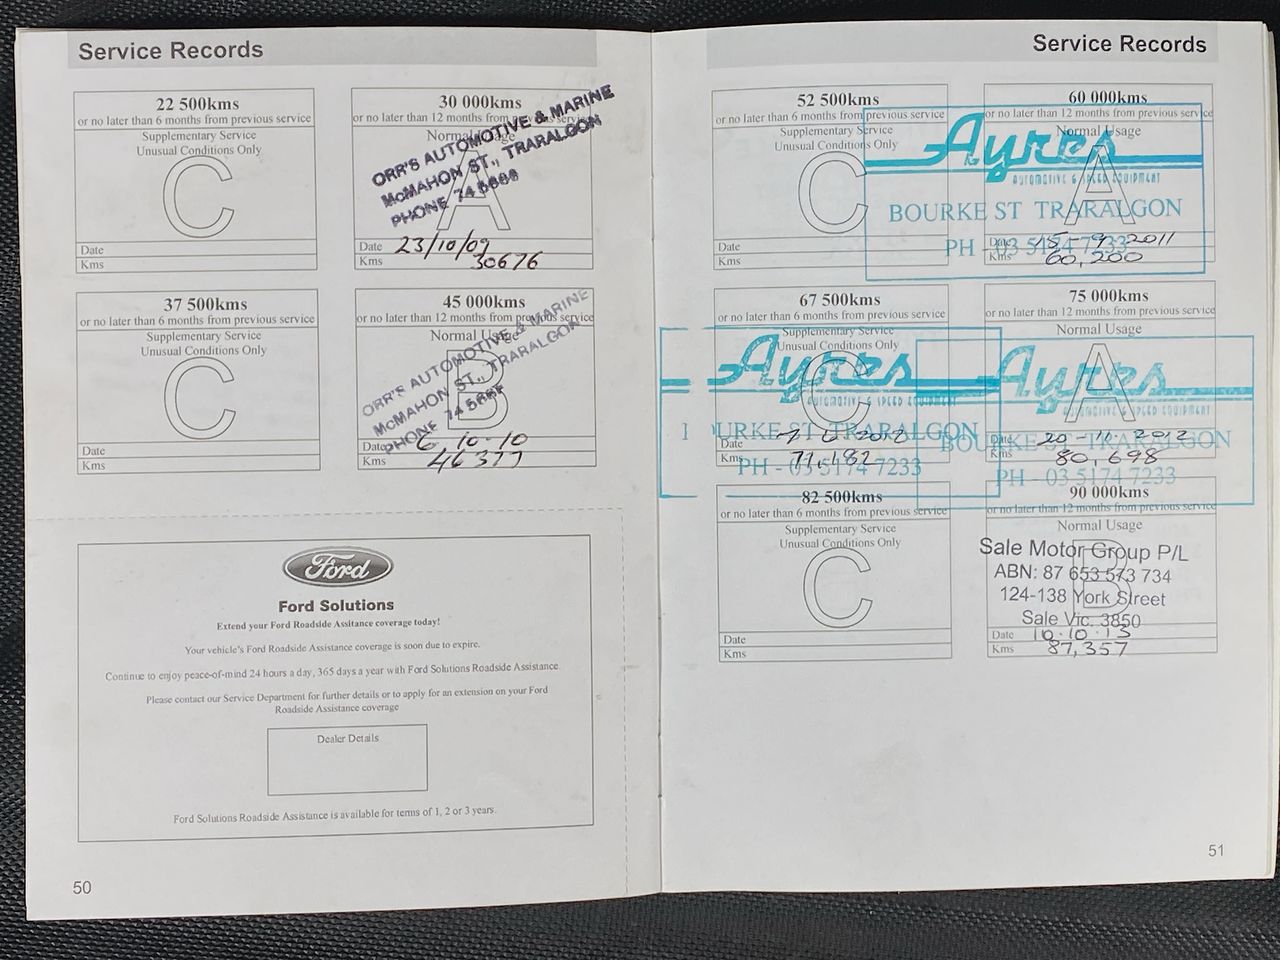 Service Records
22 500kms
or no later than 6 months from previous service
Supplementary Service
Unusual Conditions Only
C
Date
Kms
30 000kms
or no later than 12 months from previous service
Normal Usage
A
ORR'S AUTOMOTIVE & MARINE
McMAHON ST., TRARALGON
PHONE 74 5666
Date 23/10/09
Kms 30676
37 500kms
or no later than 6 months from previous service
Supplementary Service
Unusual Conditions Only
C
Date
Kms
45 000kms
or no later than 12 months from previous service
Normal Usage
B
ORR'S AUTOMOTIVE & MARINE
McMAHON ST., TRARALGON
PHONE 74 5666
Date 6-10-10
Kms 46377
Ford
Ford Solutions
Extend your Ford Roadside Assitance coverage today!
Your vehicle's Ford Roadside Assistance coverage is soon due to expire.
Continue to enjoy peace-of-mind 24 hours a day, 365 days a year with Ford Solutions Roadside Assistance.
Please contact our Service Department for further details or to apply for an extension on your Ford
Roadside Assistance coverage
Dealer Details
Ford Solutions Roadside Assistance is available for terms of 1, 2 or 3 years.
50
Service Records
52 500kms
or no later than 6 months from previous service
Supplementary Service
Unusual Conditions Only
C
Date
Kms
60 000kms
or no later than 12 months from previous service
Normal Usage
A
Ayres
AUTOMOTIVE & SPEED EQUIPMENT
BOURKE ST TRARALGON
PH - 03 5174 7233
Date 15-9-2011
Kms 60,200
67 500kms
or no later than 6 months from previous service
Supplementary Service
Unusual Conditions Only
C
Ayres
AUTOMOTIVE & SPEED EQUIPMENT
URKE ST TRARALGON
PH - 03 5174 7233
Date
Kms 71,182
75 000kms
or no later than 12 months from previous service
Normal Usage
A
Ayres
AUTOMOTIVE & SPEED EQUIPMENT
BOURKE ST TRARALGON
PH - 03 5174 7233
Date 20-11-2012
Kms 80,698
82 500kms
or no later than 6 months from previous service
Supplementary Service
Unusual Conditions Only
C
Date
Kms
90 000kms
or no later than 12 months from previous service
Normal Usage
B
Sale Motor Group P/L
ABN: 87 653 573 734
124-138 York Street
Sale Vic. 3850
Date 10.10.13
Kms 87,357
51